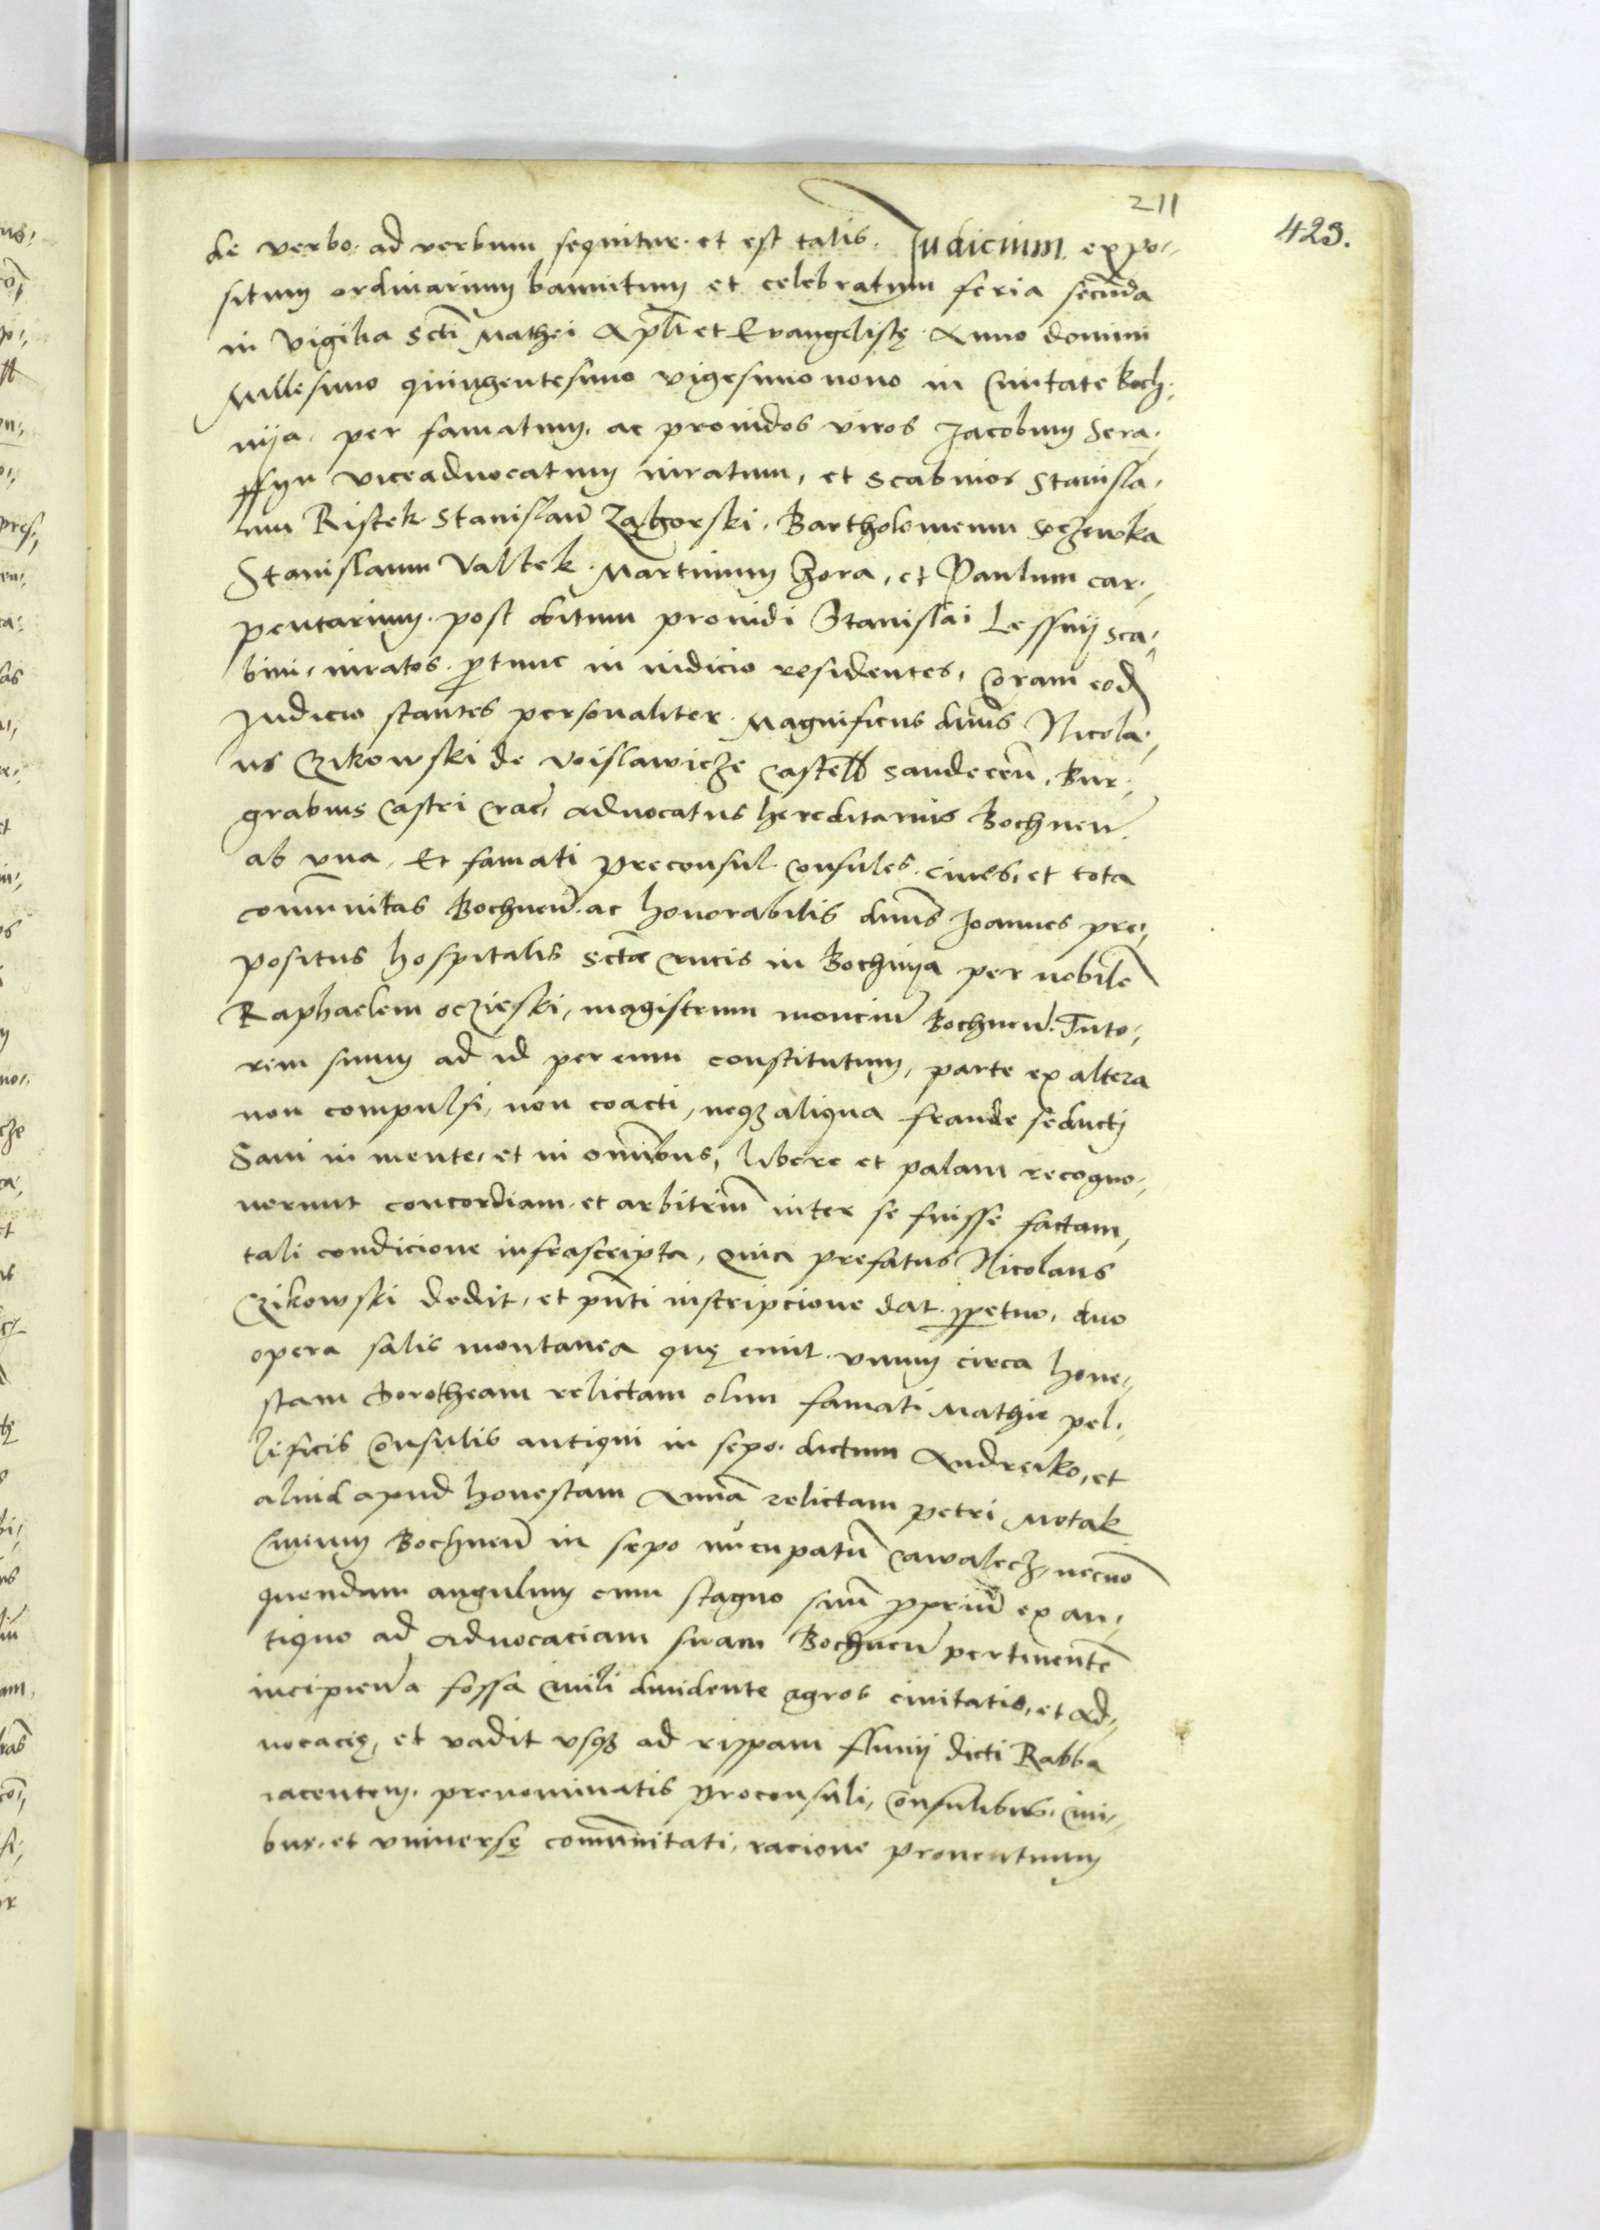 211
423.
de verbo ad verbum sequitur et est talis. Judicium expo-
situm ordinarium bannitum et celebratum feria secūda
in vigilia Scti Mathei Apli et Evangelistę Anno domini
Millesimo quingentesimo vigesimo nono in Civitate Boch-
nija per famatum ac providos viros Jacobum Sera-
ffyn viceadvocatum iuratum, et Scabinos Stanisla-
um Ristek Stanislaū Zagorski, Bartholomeum Soczewka
Stanislaum Valtek Martinum Gora, et Paulum car-
pentarium post obitum providi Stanislai Lessnij Sca-
bini, iuratos protunc in iudicio residentes, Coram eod
Judicio stantes personaliter Magnificus dnus Nicola-
us Czikowski de Voislawicze Castell Sandeceñ. Bur-
grabius Castri Crac̃, advocatus hereditarius Bochneñ
ab una, Et famati Preconsul Consules, Cives, et tota
comūnitas Bochneñ ac honorabilis dnus Joannes pre-
positus hospitalis Sctæ Crucis in Bochnija per nobilē
Raphaelem oczieski, magistrum monciū Bochneñ. Tuto-
rem suum ad id per eum constitutum, parte ex altera
non compulsi, non coacti, neqз aliqua fraude seducti
Sani in mente, et in omībus, libere et palam recogno-
verunt concordiam et arbitriū inter se fuisse factam,
tali condicione infrascripta, quia prefatus Nicolaus
Czikowski dedit, et pñti inscripcione dat ppetuo, duo
opera salis montanea quę emit unum circa hone-
stam Dorotheam relictam olim famati Mathie pel-
lificis Consulis antiqui in sepo dictum Andreiko, et
aliud apud honestam Annā relictam petri Motak
Civium Bochneñ in sepo nūcupatū Cawalecz, necnō
quendam angulum cum stagno suū propriū ex an-
tiquo ad advocaciam suam Bochneñ pertinentē
incipieñ a fossa Civili dividente agros civitatis, et ad-
vocacię, et vadit usqз ad rippam fluvij dicti Rabba
iacentem, prenominatis Proconsuli, Consulibus, Civi-
bus, et universę comūnitati, racione proventuum